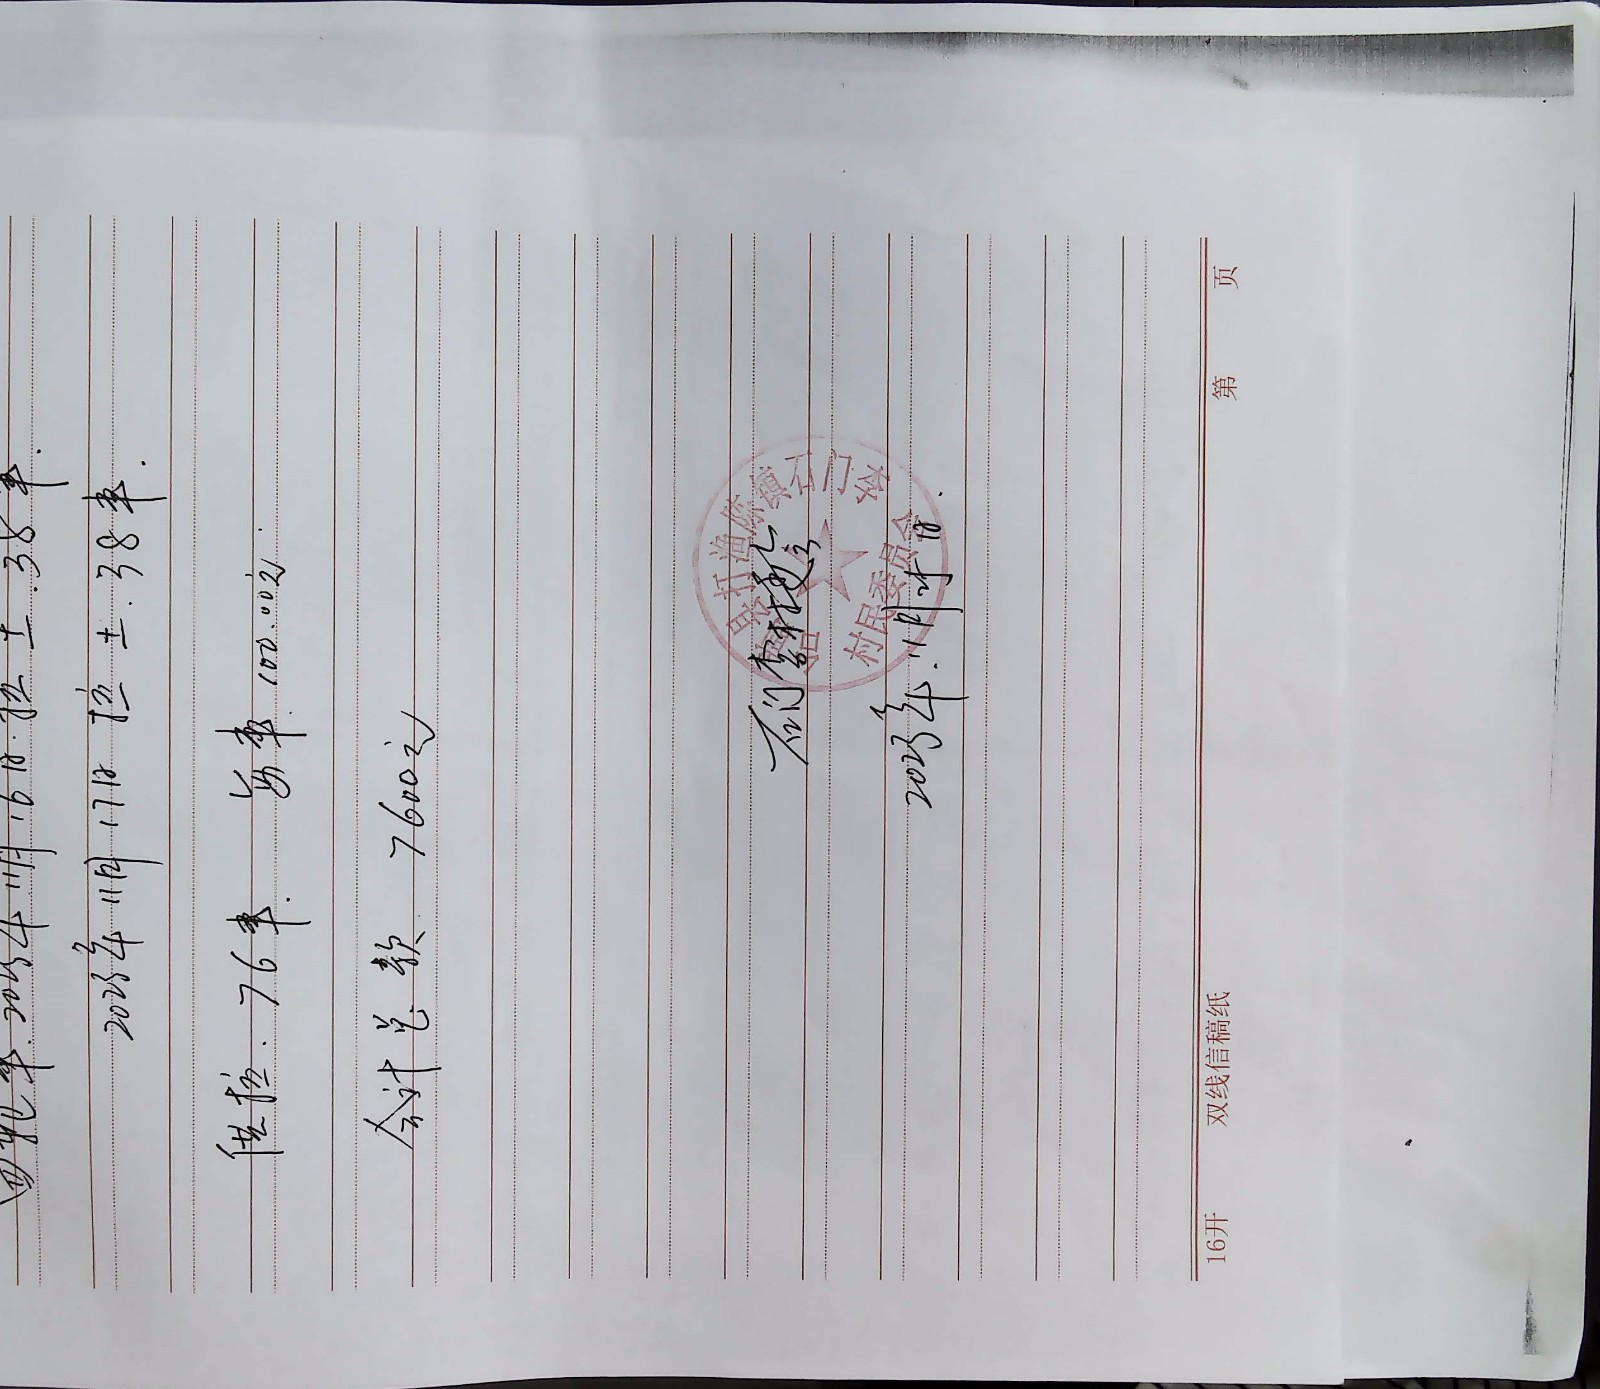 2023年11月16日.拉土.38车.
2023年11月17日 拉土.38车.
共拉.76车. 每车.100.00元.
合计总款 7600元
石门
2023年.11月 日.
打渔陈镇石门
村民委员会
16开 双线信稿纸 第 页